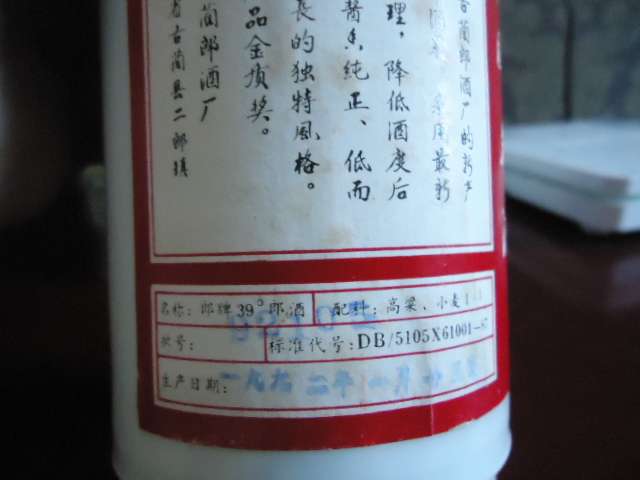 古蔺郎酒厂的新产
酒
采用最新
理，降低酒度后
酱香纯正、低而
长的独特风格。
品金质奖。
蔺郎酒厂
省古蔺县二郎镇
名称：郎牌39°郎酒
配料：高粱、小麦
批号：
标准代号：DB/5105X61001-87
生产日期：一九九二年一月十三